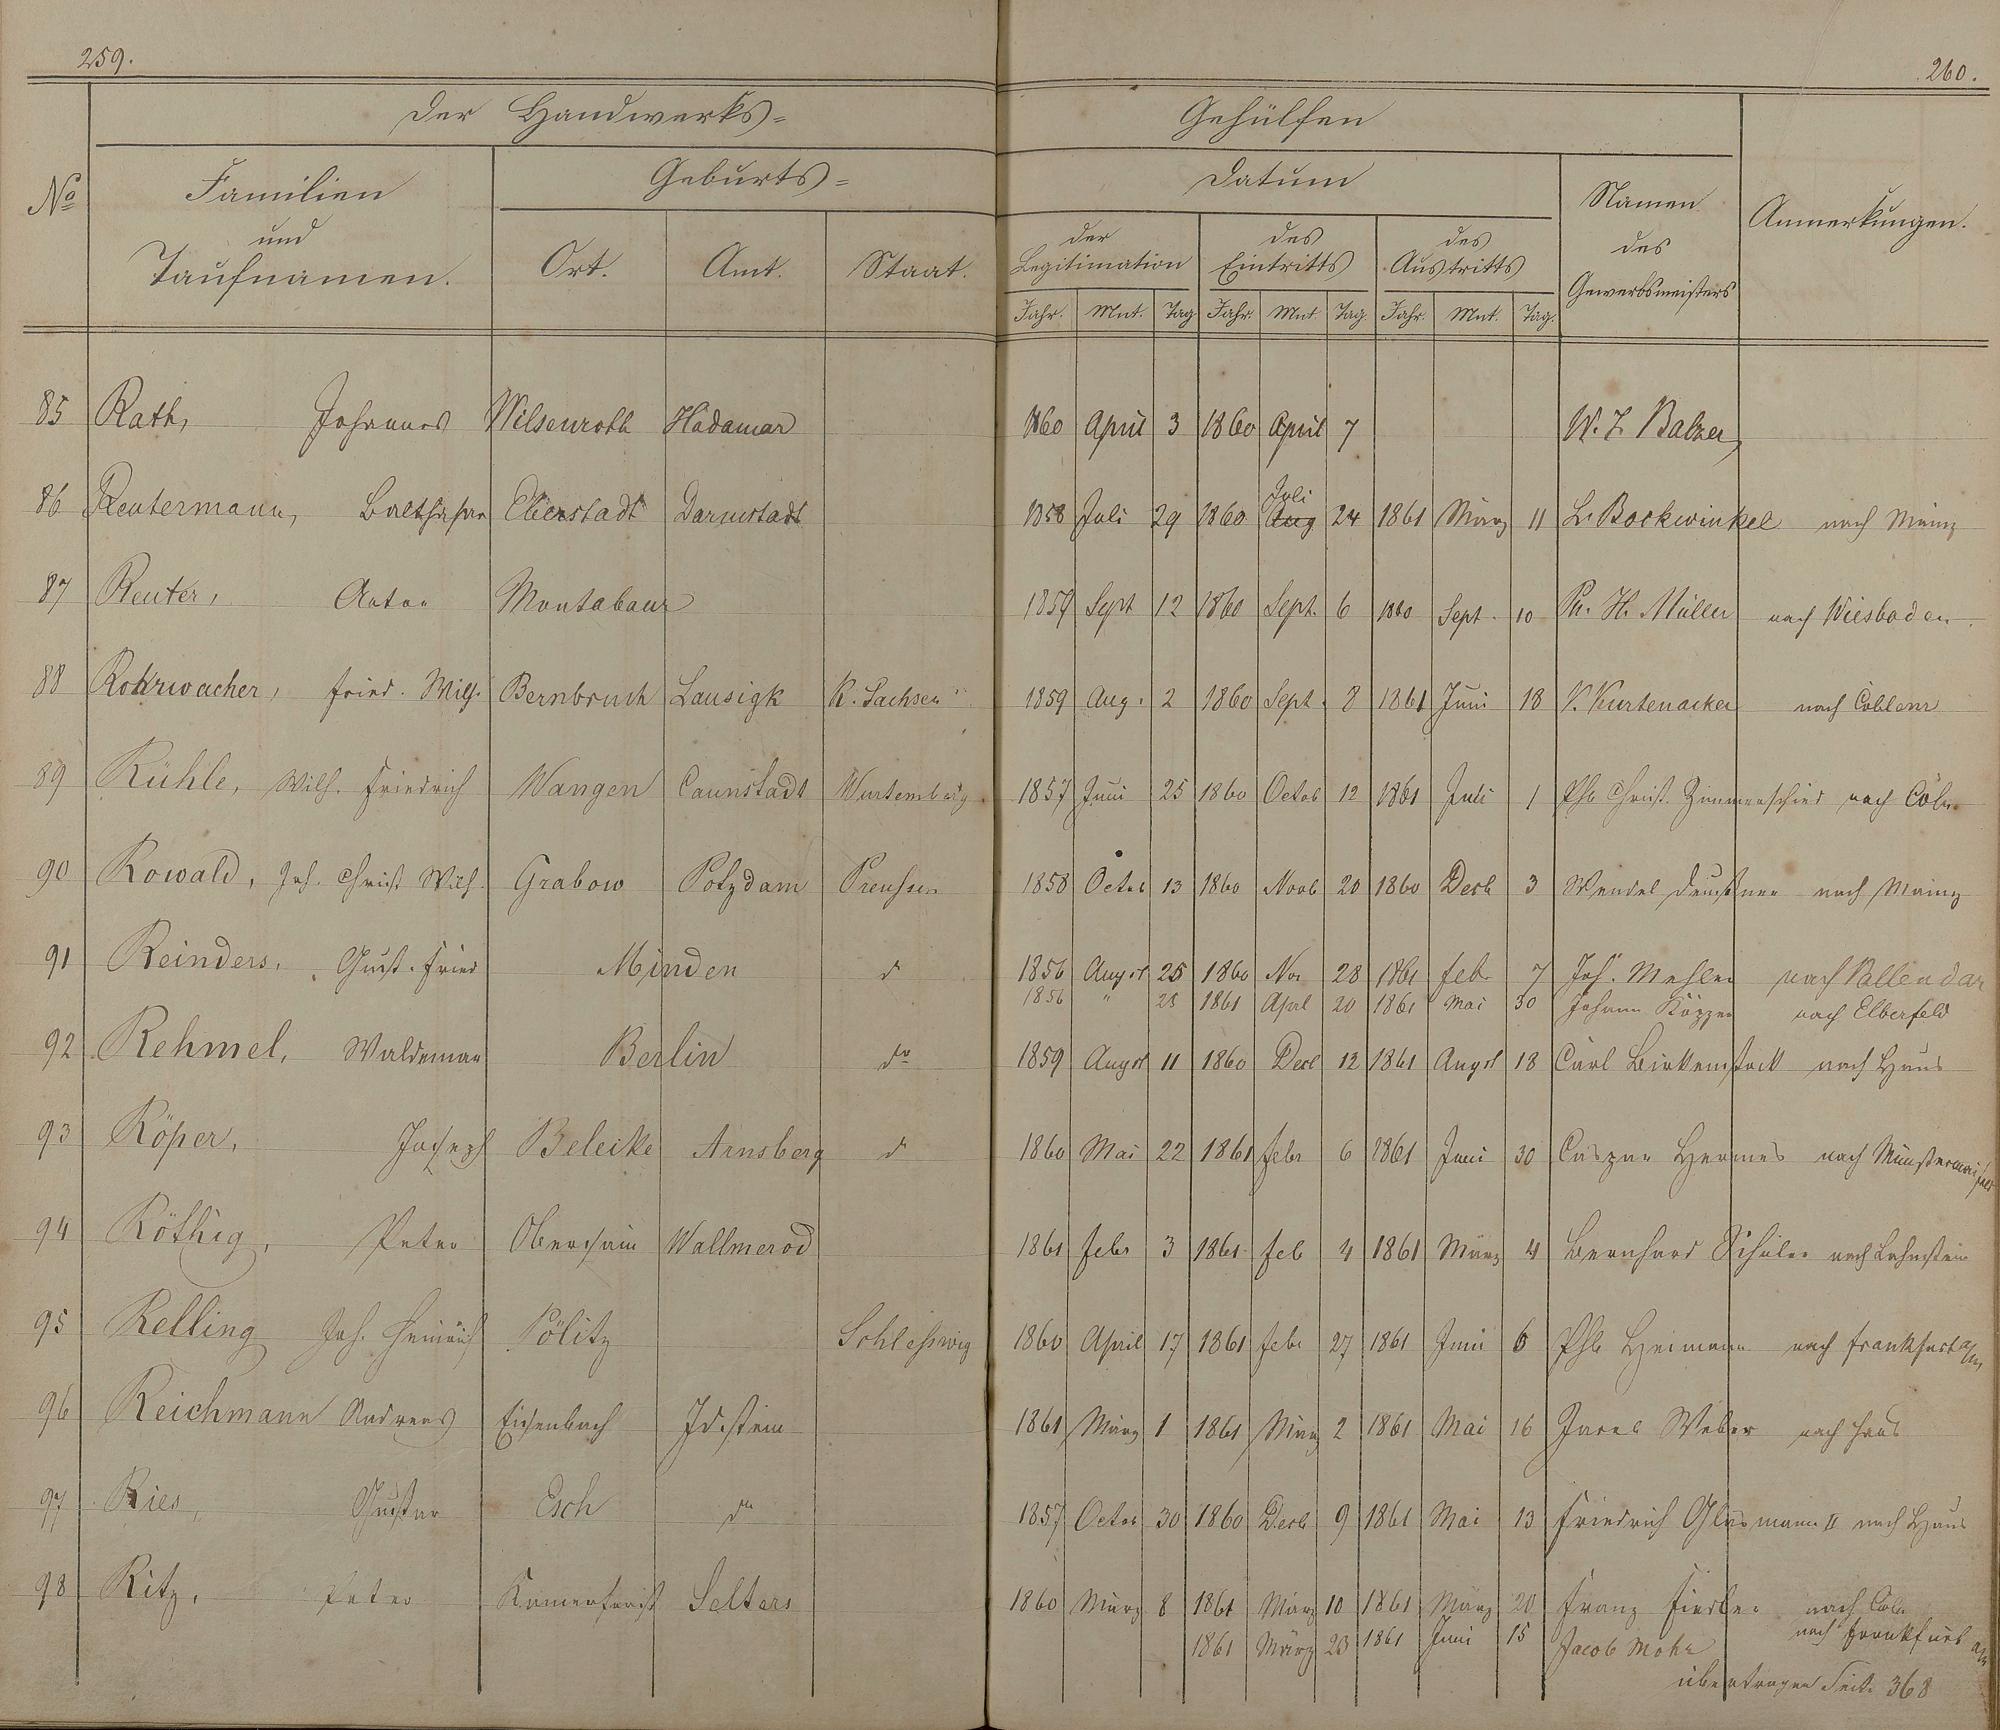 259.
260.
Der Handwerks=
Gehülfen
No
Familien
und
Taufnamen.
Geburts=
Ort.
Amt.
Staat.
Datum
der
Legitimation
des
Eintritts
des
Austritts
Jahr. Mnt. Tag Jahr Mnt Tag. Jahr. Mnt. Tag.
Namen
des
Gewerbsmeisters
Anmerkungen.
85 Rath, Johannes Wilsenroth Hadamar 1860 April 3 1860 April 7 W. Z. Balzer,
Juli
86 Reutermann, Balthasar Eberstadt Darmstadt 1858 Juli 29 1860 Aug 24 1861 März 11 Lr. Bockwinkel nach Mainz
87 Reuter, Anton Montabaur 1859 Sept 12 1860 Sept. 6 1860 Sept. 10 Ph. H. Müller nach Wiesbaden
88 Rohrwacher, Fried. Wilh. Bernbruch Lausigk K. Sachsen 1859 Aug. 2 1860 Sept. 8 1861 Juni 18 V. Kurtenacker nach Coblenz
89 Rühle, Wilh. Friedrich Wangen Cannstadt Wurtemberg 1857 Juni 25 1860 Octob 12 1861 Juli 1 Phb Christ. Zimmerschied nach Cöln
90 Rowald, Joh. Christ Wilh. Grabow Potzdam Preußen 1858 Octob 13 1860 Novb 20 1860 Decb 3 Wendel nach Mainz
91 Reinders, Gust. Fried Minden do 1856 Augst 25 1860 Nov 28 1861 Febr 7 Joh. Mehler nach Vallendar
1856 " 25 1861 Aprl 20 1861 Mai 30 Johann Köppen nach Elberfeld
92 Rehmel, Waldemar Berlin do 1859 Augst 11 1860 Decb 12 1861 Augst 18 Carl Birkenstock nach Haus
93 Röper, Joseph Beleike Arnsberg do 1860 Mai 22 1861 Febr 6 1861 Juni 30 Caspar Hermes nach Münstermaifeld
94 Röthig, Peter Oberhain Wallmerod 1861 Febr 3 1861 Feb 4 1861 März 4 Bernhard Schüler nach Lahnstein
95 Relling Joh. Heinrich Pölitz Schleßwig 1860 April 17 1861 Febr 27 1861 Juni 6 Phb Heimann nach Frankfurt a/m
96 Reichmann Andreas Eisenbach Idstein 1861 März 1 1861 März 2 1861 Mai 16 Jacob Weber nach Haus
97 Ries, Gustav Esch do 1857 Octob 30 1860 Decb 9 1861 Mai 13 Friedrich Glasmann II nach Haus
98 Ritz, Peter Kamerforst Selters 1860 März 8 1861 März 10 1861 März 20 Franz nach Cöln
1861 März 23 1861 Juni 15 Jacob Mohr nach Frankfurt a/m
übertragen Seite 368